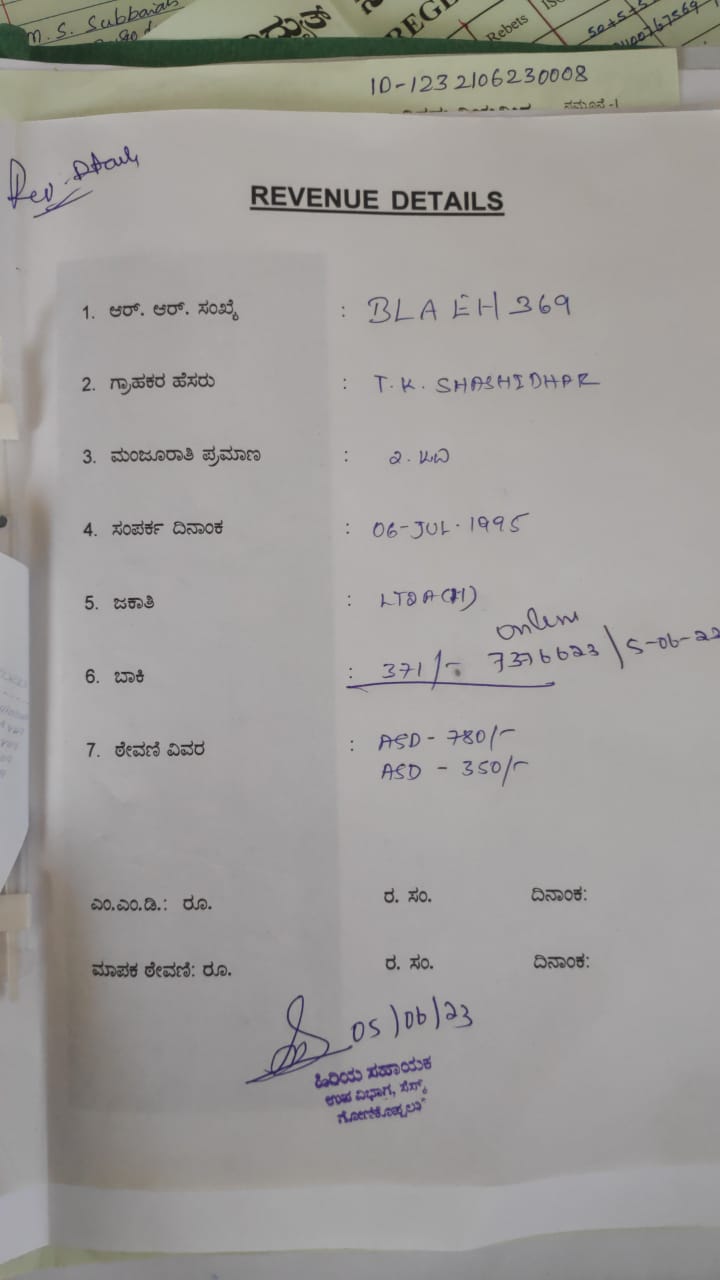 M. S. Subbaiah
REGE
Rebets
50+5+5
ID-1232106230008
ನಮೂನೆ -1
Rev. Details
REVENUE DETAILS
1. ಆರ್. ಆರ್. ಸಂಖ್ಯೆ : BLAEH369
2. ಗ್ರಾಹಕರ ಹೆಸರು : T. K. SHASHIDHAR
3. ಮಂಜೂರಾತಿ ಪ್ರಮಾಣ : 2. KW
4. ಸಂಪರ್ಕ ದಿನಾಂಕ : 06-JUL-1995
5. ಜಕಾತಿ :
online
6. ಬಾಕಿ : 371/- 7376623/5-06-22
7. ಠೇವಣಿ ವಿವರ : ASD - 780/-
ASD - 350/-
ಎಂ.ಎಂ.ಡಿ.: ರೂ. ರ. ಸಂ. ದಿನಾಂಕ:
ಮಾಪಕ ಠೇವಣಿ: ರೂ. ರ. ಸಂ. ದಿನಾಂಕ:
05/06/23
ಹಿರಿಯ ಸಹಾಯಕ
ಉಪ ವಿಭಾಗ, ಸೆಸ್ಕ್
ಗೋಣಿಕೊಪ್ಪಲು